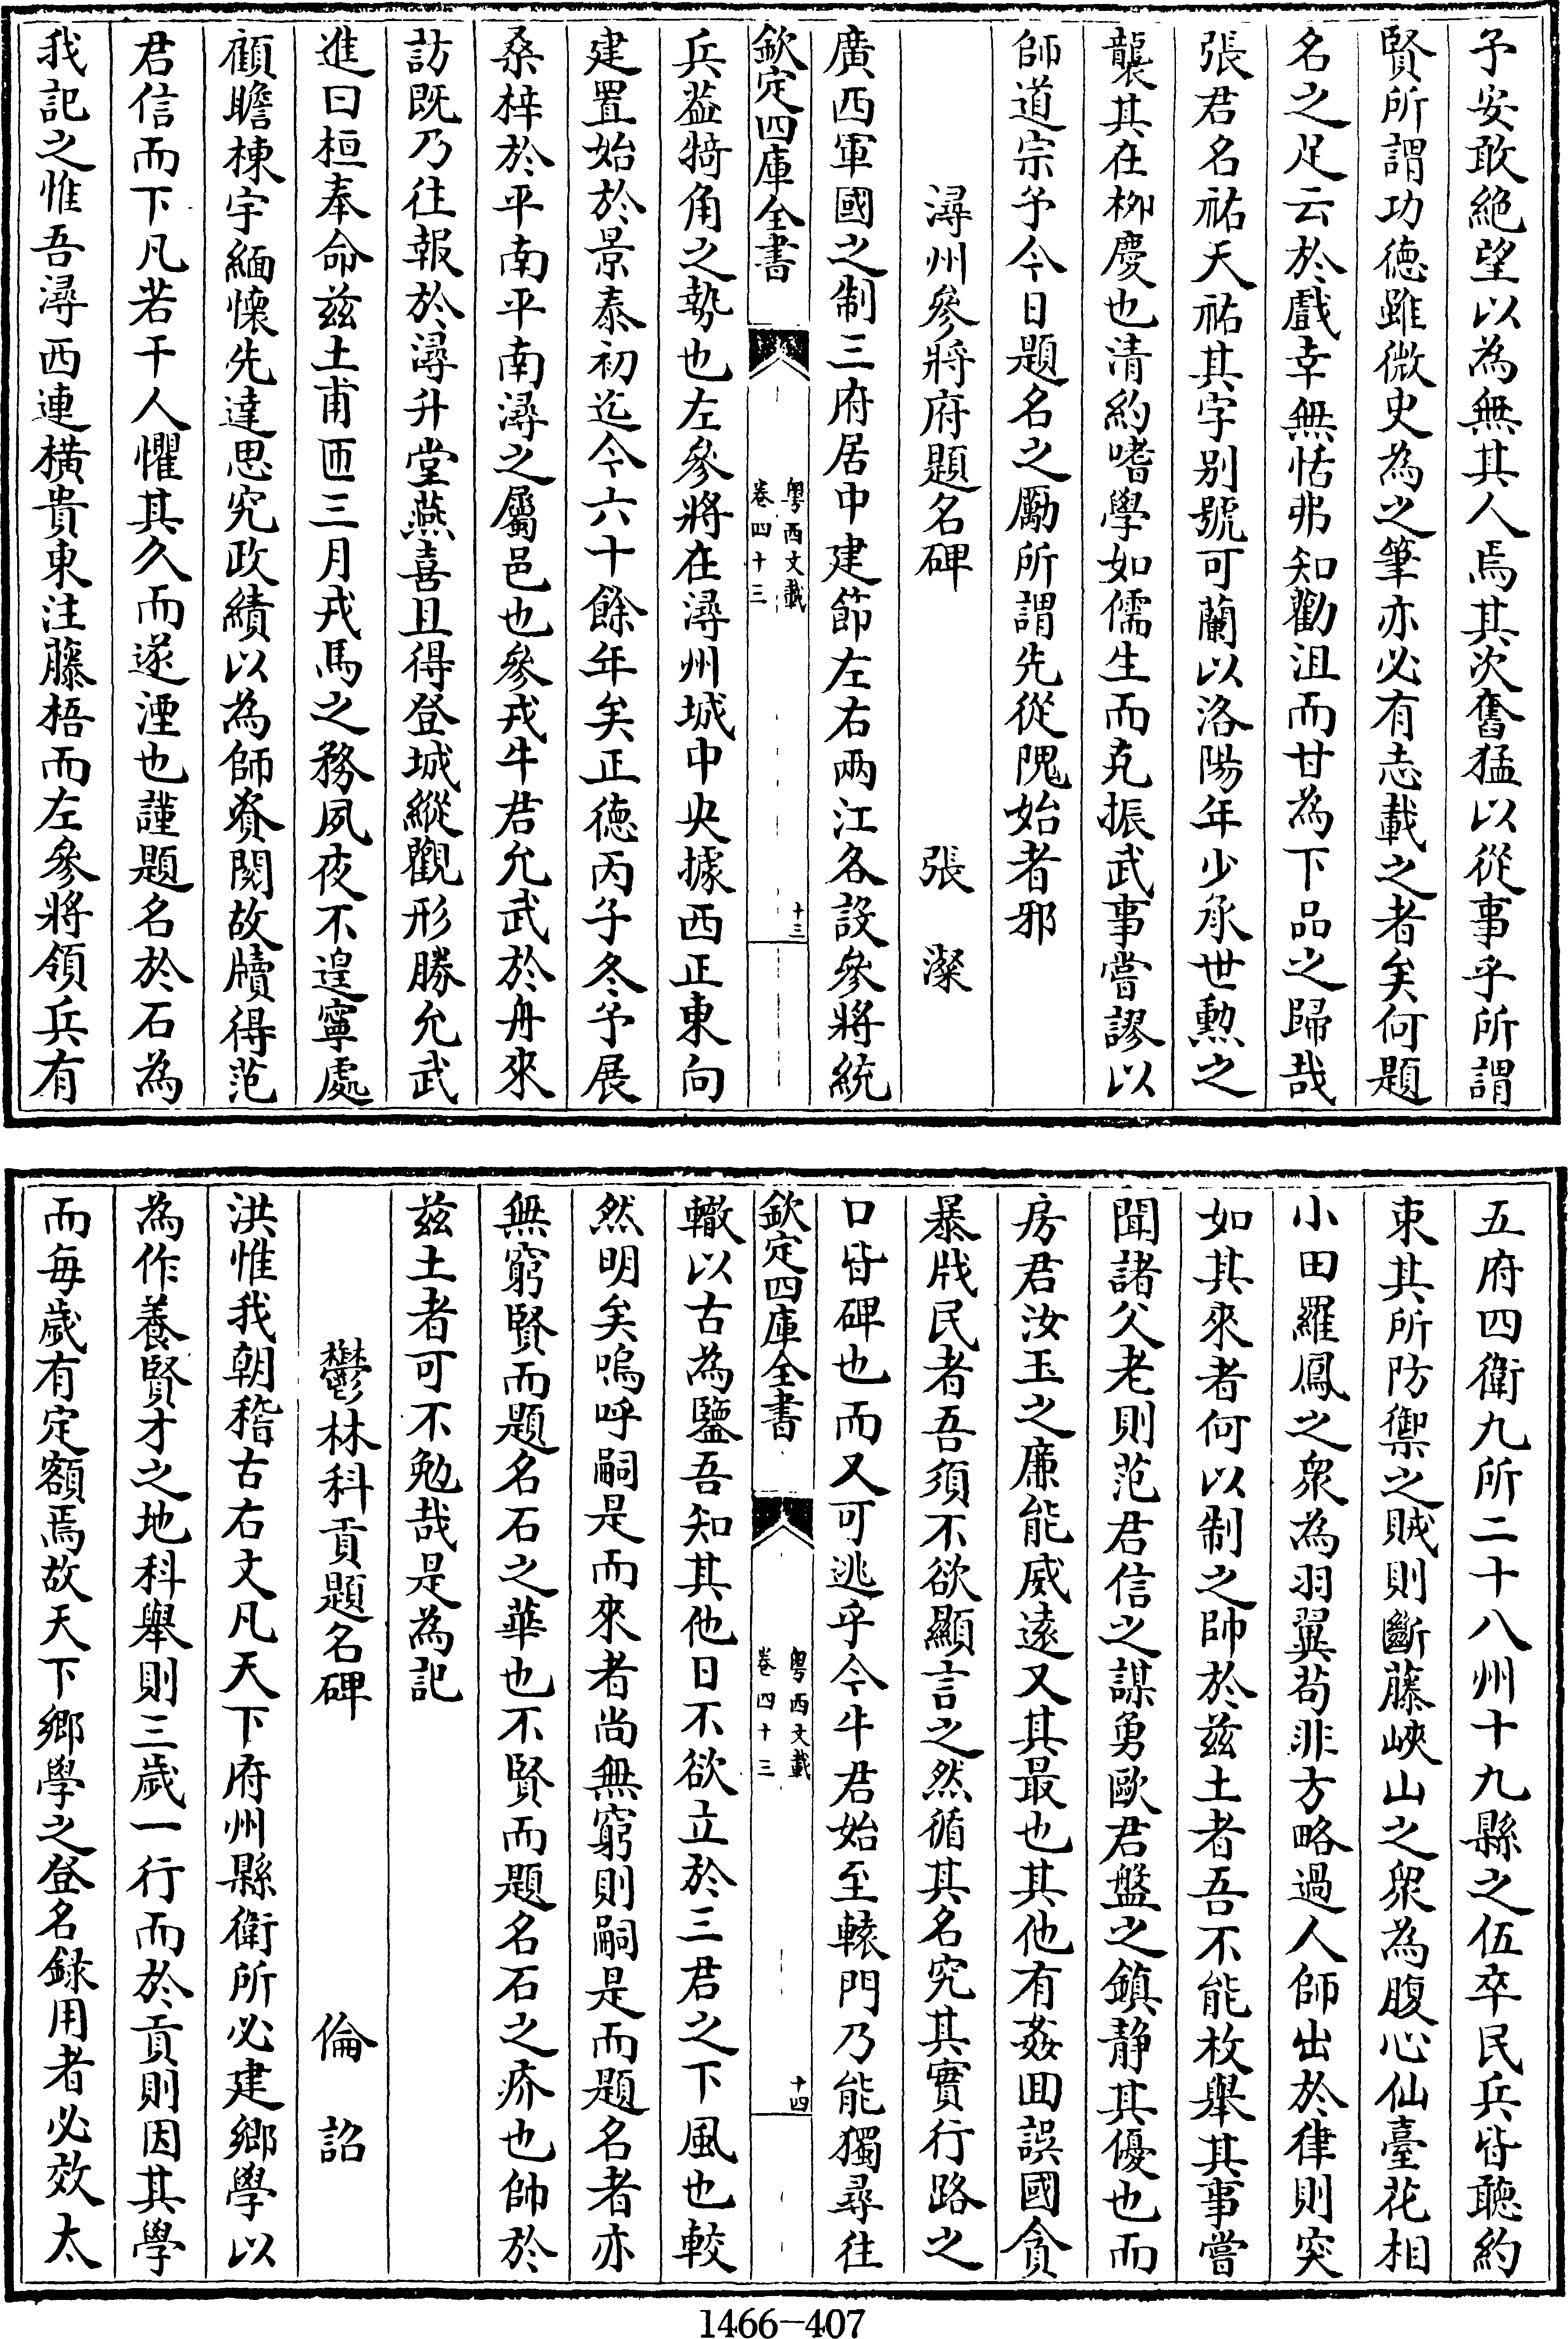 予安敢絶望以為無其人焉其次奮猛以從事乎所謂
賢所謂功德雖微史為之筆亦必有志載之者矣何題
名之足云於戲幸無恬弗知勸沮而甘為下品之歸哉
張君名祐天祐其字别號可蘭以洛陽年少承世勲之
襲其在柳慶也清約嗜學如儒生而克振武事嘗謬以
師道宗予今日題名之勵所謂先從隗始者邪
潯州參將府題名碑 張濴
廣西軍國之制三府居中建節左右兩江各設參將統
欽定四庫全書
粤西文載
卷四十三
十三
兵葢犄角之勢也左參將在潯州城中央據西正東向
建置始於景泰初迄今六十餘年矣正德丙子冬予展
桑梓於平南平南潯之屬邑也參戎牛君允武於舟來
訪既乃往報於潯升堂燕喜且得登城縱觀形勝允武
進曰桓奉命兹土甫匝三月戎馬之務夙夜不遑寧處
顧瞻棟宇緬懷先達思究政績以為師資閱故牘得范
君信而下凡若干人懼其久而遂湮也謹題名於石為
我記之惟吾潯西連横貴東注藤梧而左參將領兵有
五府四衛九所二十八州十九縣之伍卒民兵皆聽約
束其所防禦之賊則斷藤峽山之衆為腹心仙臺花相
小田羅鳳之衆為羽翼茍非方略過人師出於律則突
如其來者何以制之帥於兹土者吾不能枚舉其事嘗
聞諸父老則范君信之謀勇歐君盤之鎮静其優也而
房君汝玉之廉能威遠又其最也其他有姦囬誤國貪
暴戕民者吾須不欲顯言之然循其名究其實行路之
口皆碑也而又可逃乎今牛君始至轅門乃能獨尋往
欽定四庫全書
粤西文載
卷四十三
十四
轍以古為鑒吾知其他日不欲立於三君之下風也較
然明矣嗚呼嗣是而來者尚無窮則嗣是而題名者亦
無窮賢而題名石之華也不賢而題名石之疥也帥於
兹土者可不勉哉是為記
鬱林科貢題名碑 倫詔
洪惟我朝稽古右文凡天下府州縣衛所必建鄉學以
為作養賢才之地科舉則三歲一行而於貢則因其學
而每歲有定額焉故天下鄉學之登名録用者必效太
1466-407